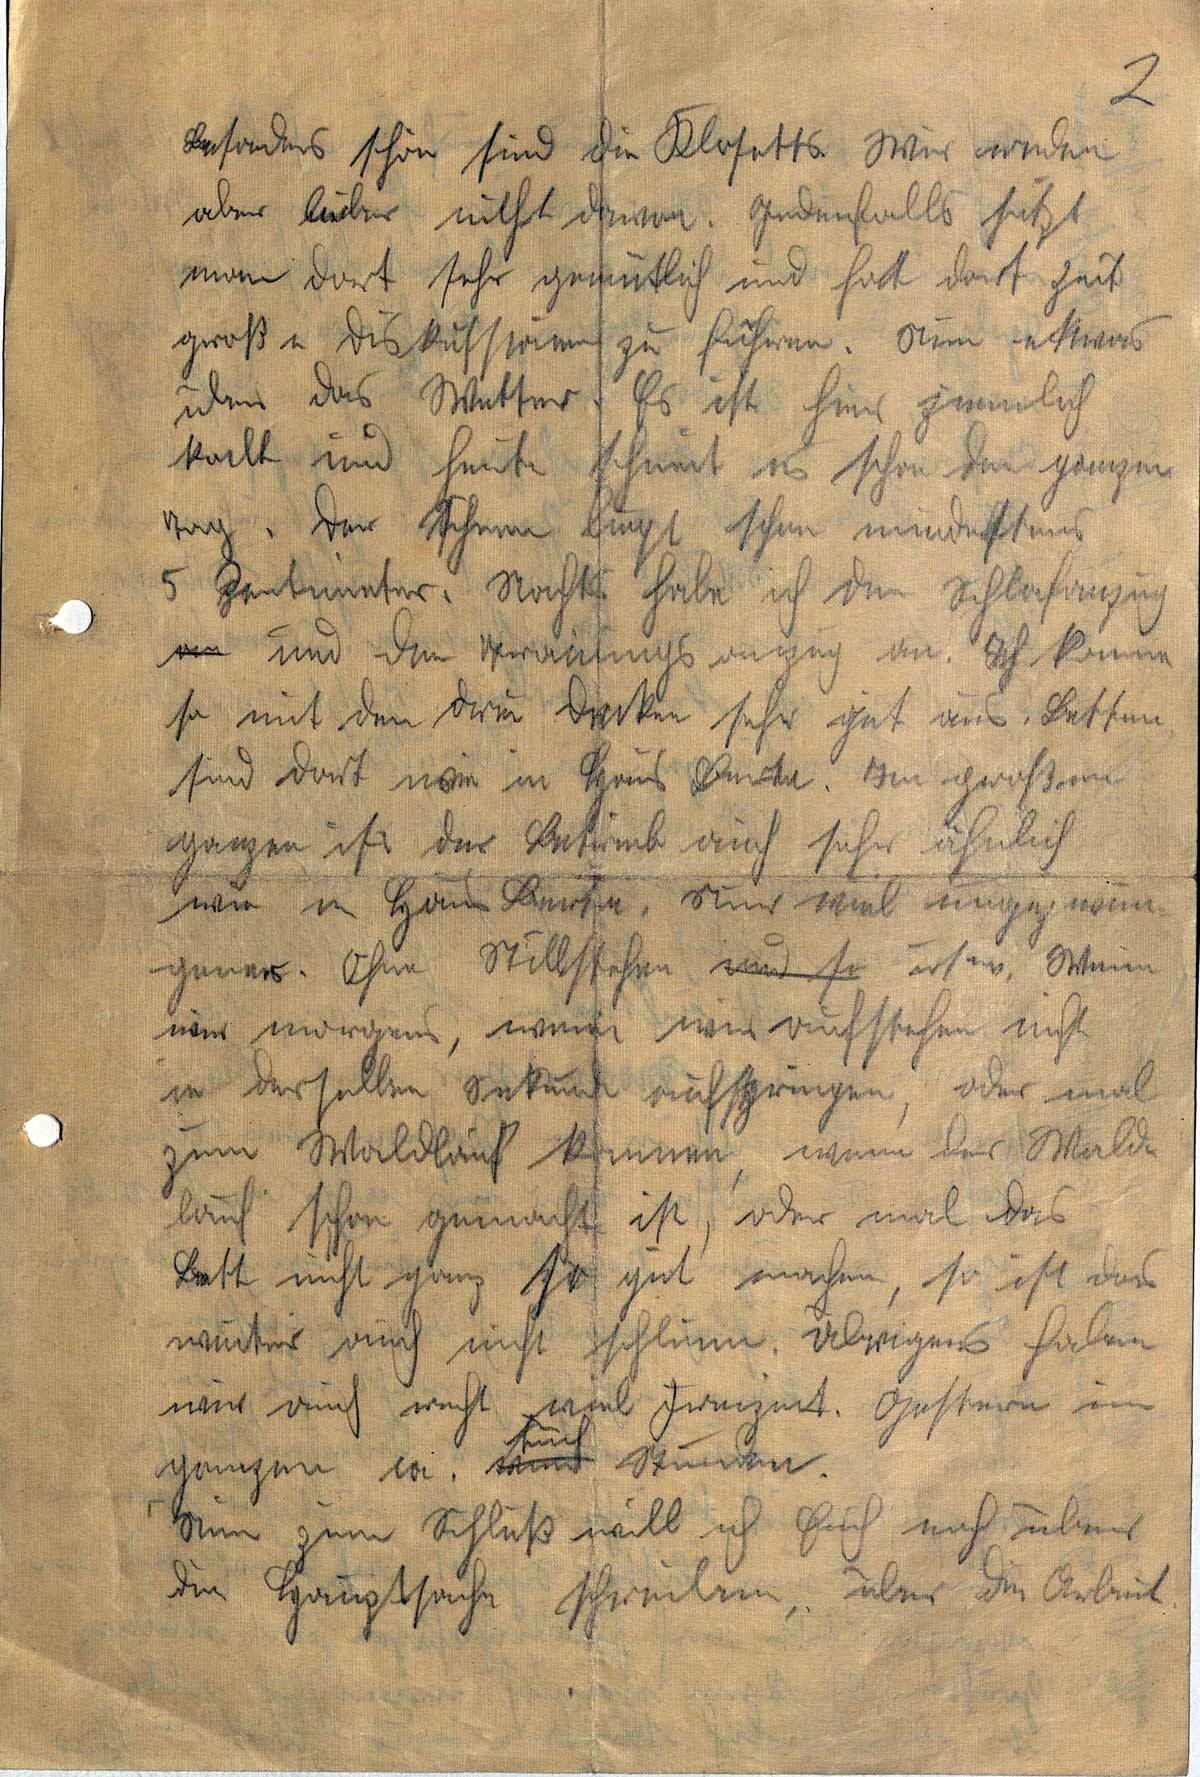 2
Besonders schön sind die Klosetts. Wir reden
aber lieber nicht davon. Jedenfalls sitzt
man dort sehr gemütlich und hat dort Zeit
große Diskussionen zu führen. Nun etwas
über das Wetter. Es ist hier ziemlich
kalt und heute schneit es schon den ganzen
Tag. Der Schnee liegt schon mindestens
5 Zentimeter. Nachts habe ich den Schlafanzug
an und den Trainingsanzug an. Ich komme
so mit den drei Decken sehr gut aus. Betten
sind dort wie in Haus Berta. Im großen
ganzen ist der Betrieb auch sehr ähnlich
wie in Haus Berta. Nur viel ungezwun-
gener. Ohne Stillstehen und so usw. Wenn
wir morgens, wenn wir aufstehen nicht
in derselben Sekunde aufspringen, oder mal
zum Waldlauf kommen, wenn der Wald-
lauf schon gemacht ist, oder mal das
Bett nicht ganz so gut machen, so ist das
weiter auch nicht schlimm. Übrigens haben
wir auch recht viel Freizeit. Gestern im
ganzen ca. Stunden.
Nun zum Schluß will ich Euch noch über
die Hauptsache schreiben, über die Arbeit.